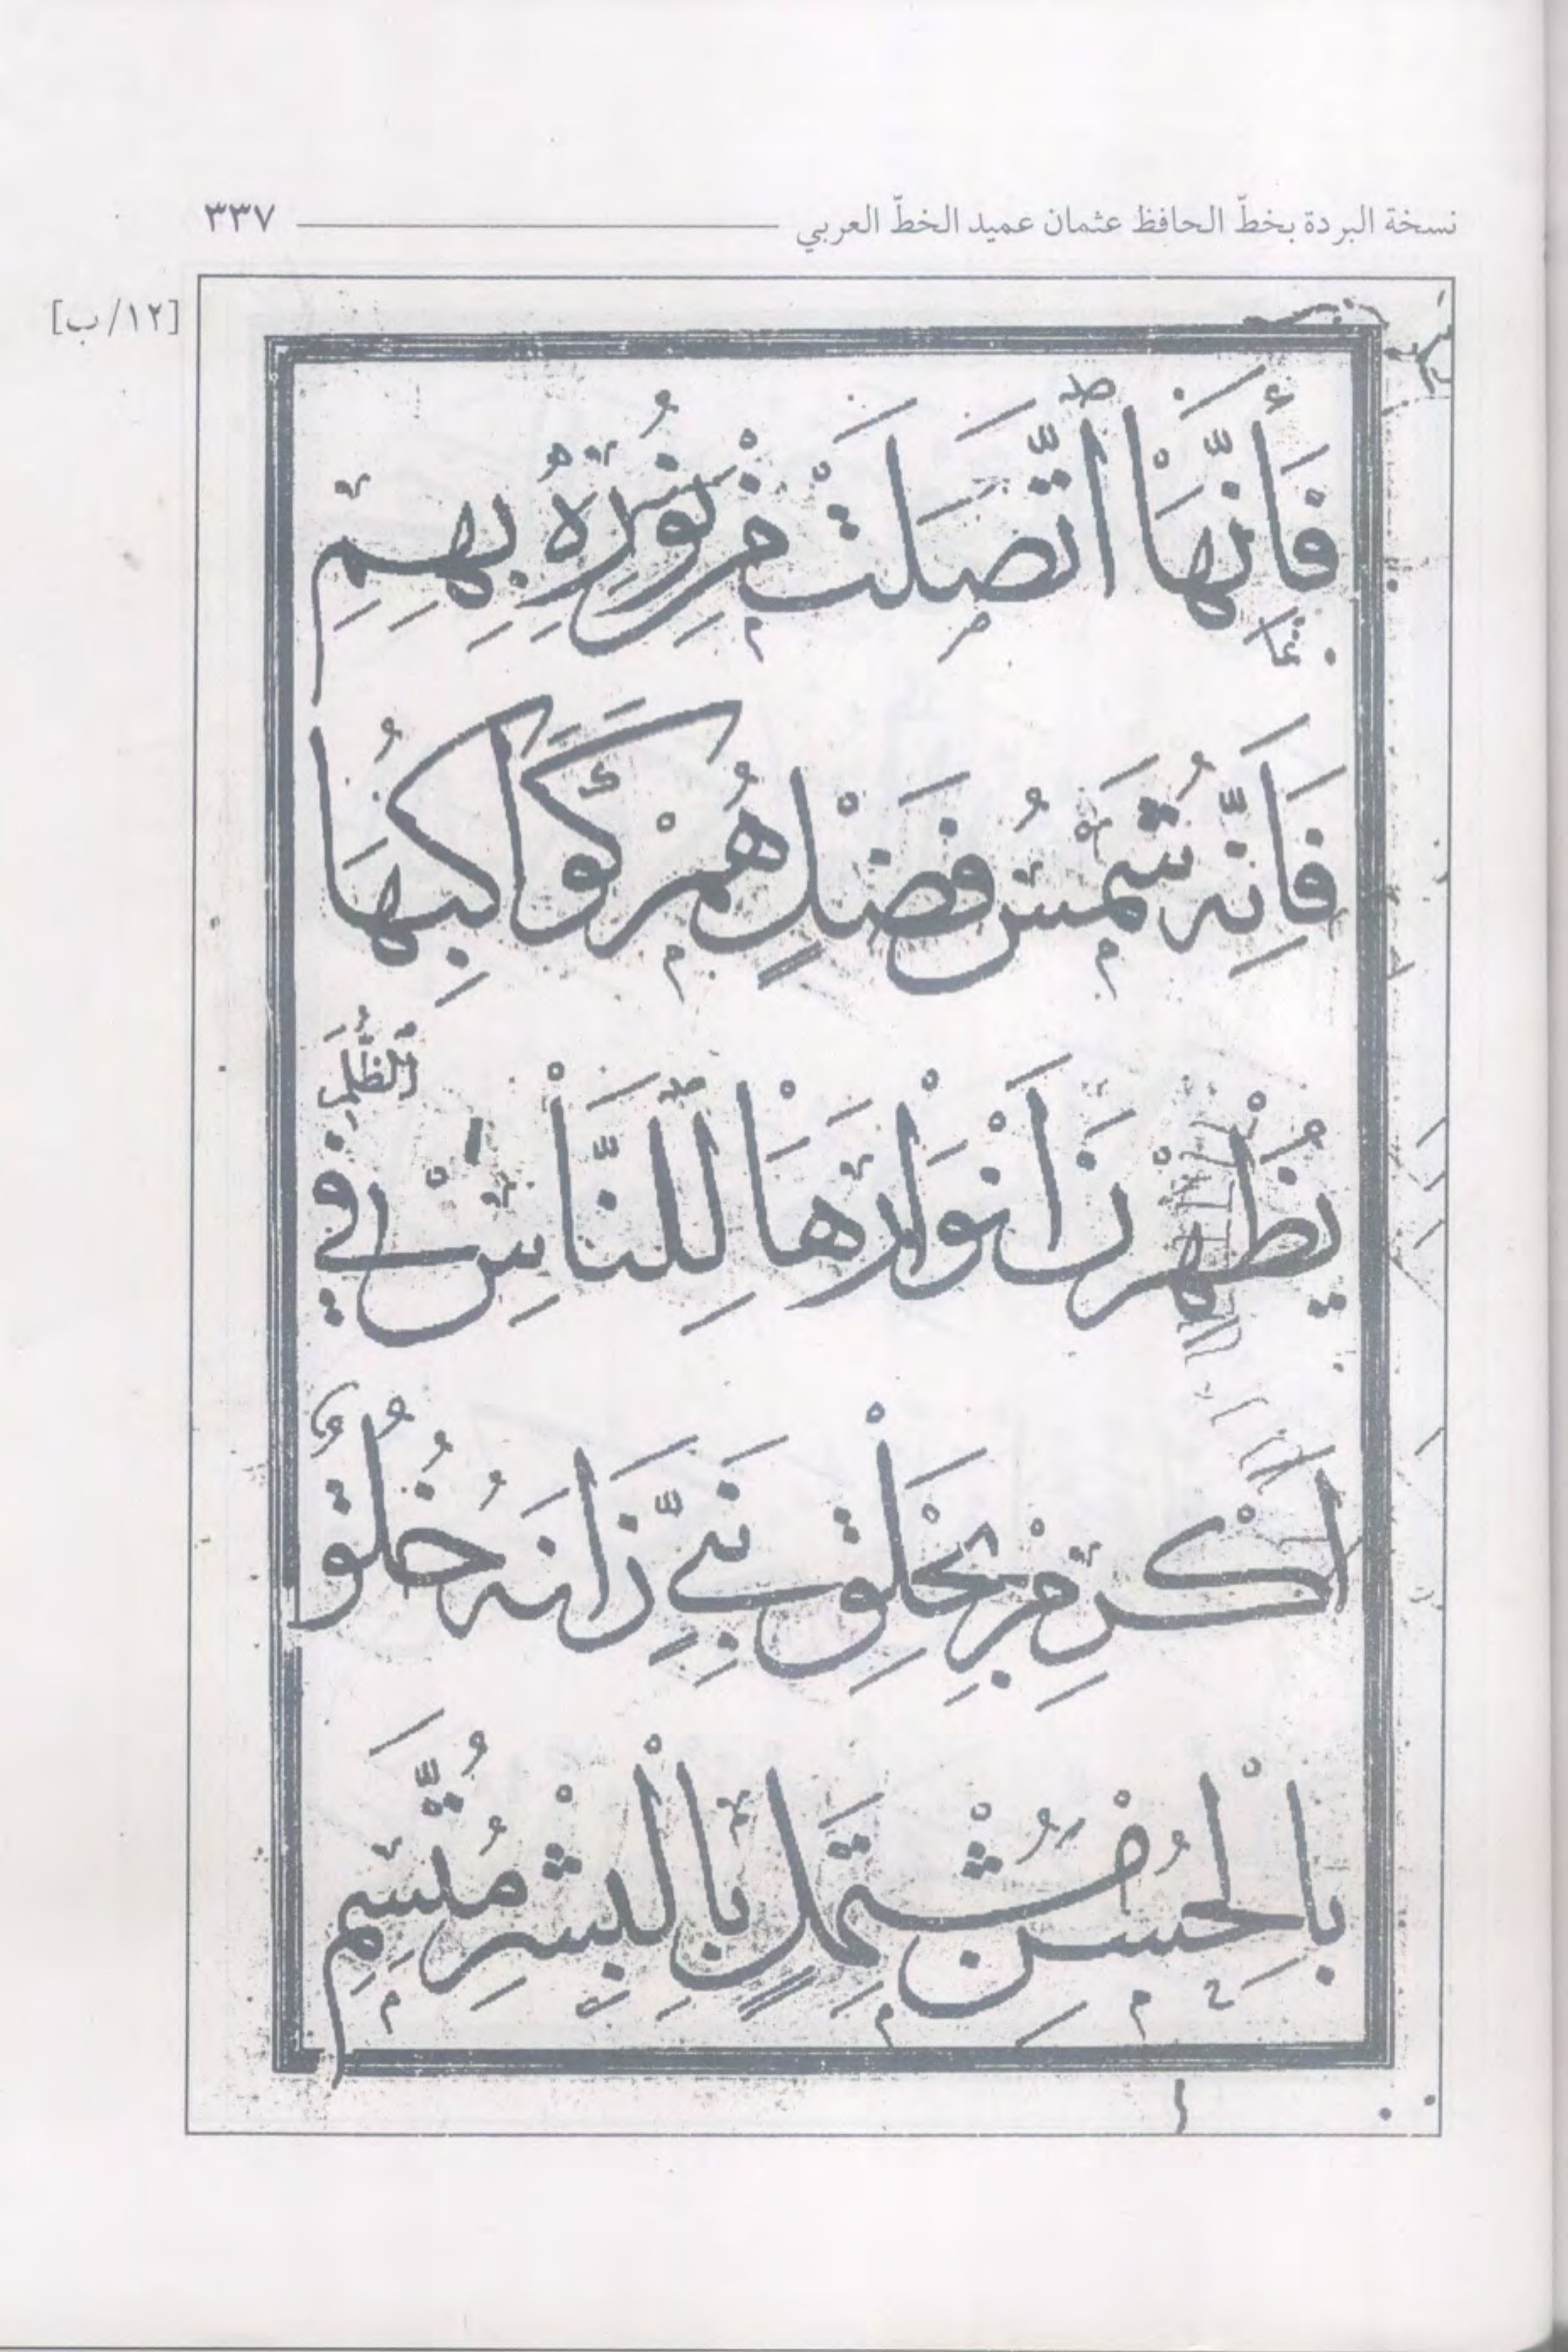 نسخة البردة بخطّ الحافظ عثمان عميد الخطّ العربي ٣٣٧
[١٢/ب]
فَاِنَّمَا اتَّصَلَتْ مِنْ نُورِهِ بِهِمِ
فَاِنَّهُ شَمْسُ فَضْلٍ هُمْ كَوَاكِبُهَا
يُظْهِرْنَ اَنْوَارَهَا لِلنَّاسِ فِي الظُّلَمِ
اَكْرِمْ بِخَلْقِ نَبِيٍّ زَانَهُ خُلُقٌ
بِالْحُسْنِ مُشْتَمِلٍ بِالْبِشْرِ مُتَّسِمِ